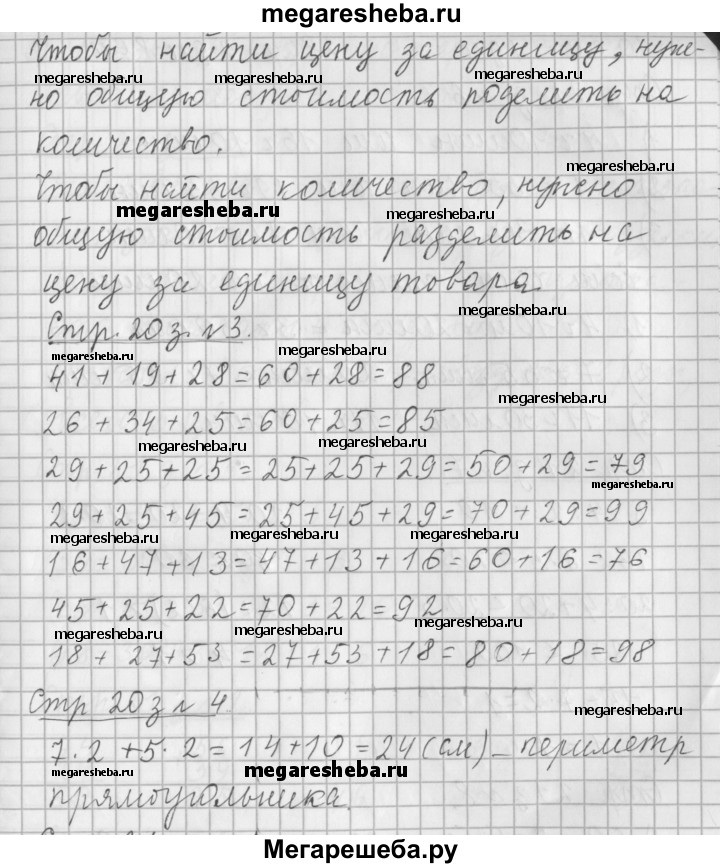 megaresheba.ru
Чтобы найти цену за единицу, нуж-
megaresheba.ru megaresheba.ru megaresheba.ru
но общую стоимость поделить на
количество.
megaresheba.ru
Чтобы найти количество, нужно
megaresheba.ru megaresheba.ru
общую стоимость разделить на
цену за единицу товара.
megaresheba.ru
Стр. 20 з. №3.
megaresheba.ru megaresheba.ru
41 + 19 + 28 = 60 + 28 = 88
megaresheba.ru
26 + 34 + 25 = 60 + 25 = 85
megaresheba.ru megaresheba.ru
29 + 25 + 25 = 25 + 25 + 29 = 50 + 29 = 79
megaresheba.ru
29 + 25 + 45 = 25 + 45 + 29 = 70 + 29 = 99
megaresheba.ru megaresheba.ru megaresheba.ru
16 + 47 + 13 = 47 + 13 + 16 = 60 + 16 = 76
45 + 25 + 22 = 70 + 22 = 92
megaresheba.ru megaresheba.ru megaresheba.ru
18 + 27 + 53 = 27 + 53 + 18 = 80 + 18 = 98
Стр 20 з № 4
megaresheba.ru
7 · 2 + 5 · 2 = 14 + 10 = 24 (см) – периметр
megaresheba.ru megaresheba.ru megaresheba.ru
прямоугольника.
Мегарешеба.ру